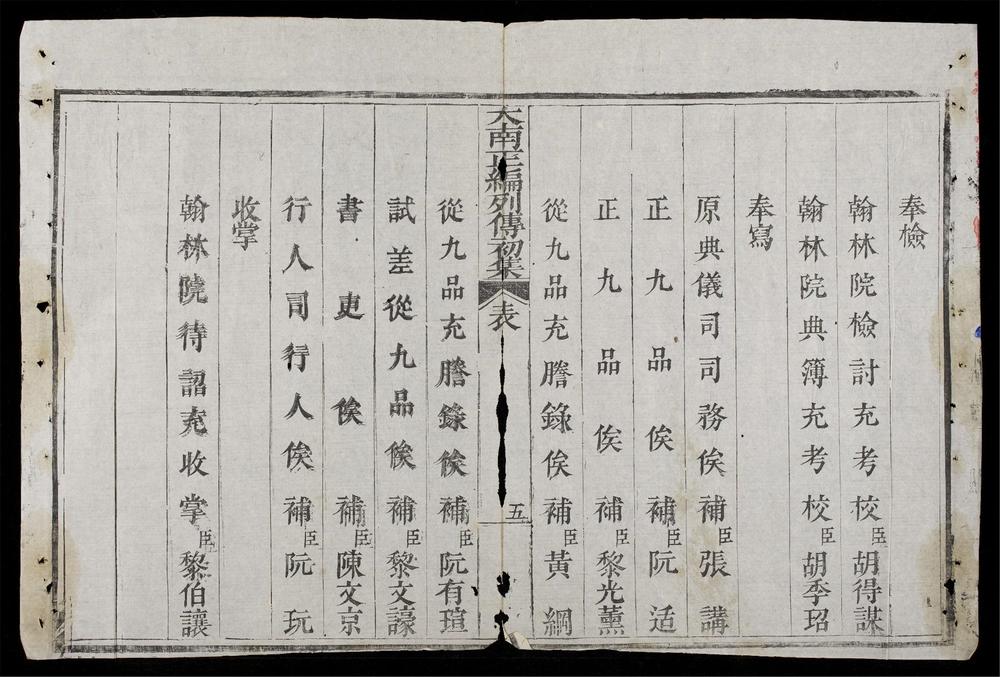 奉檢
翰林院檢討充考校臣胡得謀
翰林院典簿充考校臣胡季玿
奉寫
原典儀司司務俟補臣張講
正九品俟補臣阮适
正九品俟補臣黎光薰
從九品充謄錄俟補臣黃綱
大南正編列傳初集 表 五
從九品充謄錄俟補臣阮有瑄
試差從九品俟補臣黎文譹
書吏俟補臣陳文京
行人司行人俟補臣阮玩
收掌
翰林院待詔充收掌臣黎伯讓